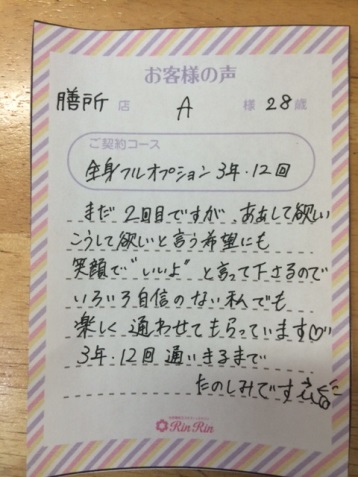 お客様の声
膳所 店 A 様 28歳
ご契約コース
全身フルオプション 3年・12回
まだ2回目ですが、ああして欲しい
こうして欲しいと言う希望にも
笑顔で"いいよ"と言って下さるので
いろいろ自信のない私でも
楽しく通わせてもらっています♡
3年・12回通いきるまで
たのしみです
RinRin